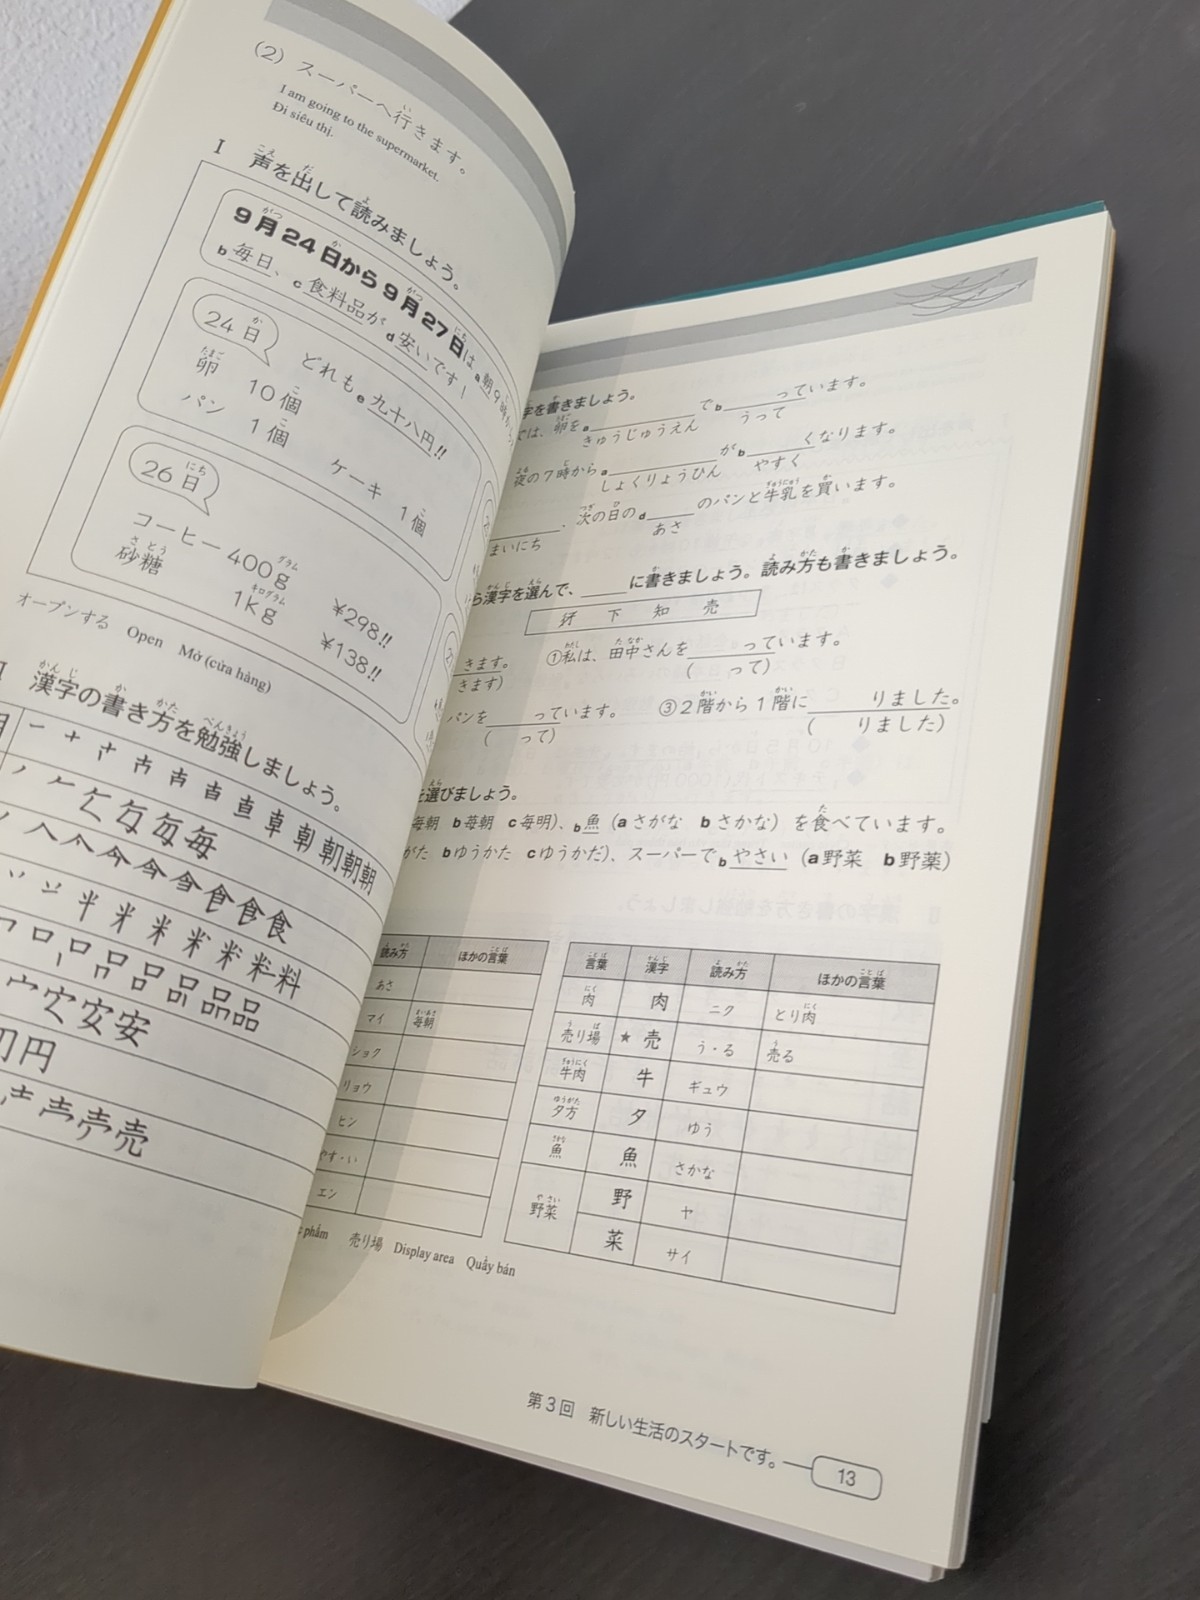 (2) スーパーへ行きます。
I am going to the supermarket.
Đi siêu thị.
I 声を出して読みましょう。
9月24日から9月27日は a朝9時から
b毎日、c食料品が d安いです!
24日 どれも e九十八円!!
卵 10個 ケーキ 1個
パン 1個
26日
コーヒー 400g ¥298!!
砂糖 1kg ¥138!!
オープンする Open Mở (cửa hàng)
漢字の書き方を勉強しましょう。
一 十 古 直 卓 朝 朝
毎
食
半 米 料
口 品
安 安
円
売
字を書きましょう。
では、卵を a でb っています。
きゅうじゅうえん うって
夜の7時から a が b くなります。
しょくりょうひん やすく
、次の日の d のパンと牛乳を買います。
まいにち あさ
ら漢字を選んで、 に書きましょう。読み方も書きましょう。
下 知 売
きます。 ①私は、田中さんを っています。
きます) ( って)
パンを っています。 ③2階から1階に りました。
( って) ( りました)
を選びましょう。
毎朝 b苺朝 c毎明)、b魚 (aさがな bさかな) を食べています。
がた bゆうかた cゆうかだ)、スーパーで bやさい (a野菜 b野薬)
読み方 ほかの言葉
あさ
マイ 毎朝
ショク
リョウ
ヒン
やす・い
エン
言葉 漢字 読み方 ほかの言葉
肉 肉 ニク とり肉
売り場 ★売 う・る 売る
牛肉 牛 ギュウ
夕方 夕 ゆう
魚 魚 さかな
野菜 野 ヤ
菜 サイ
phẩm 売り場 Display area Quầy bán
第3回 新しい生活のスタートです。 13